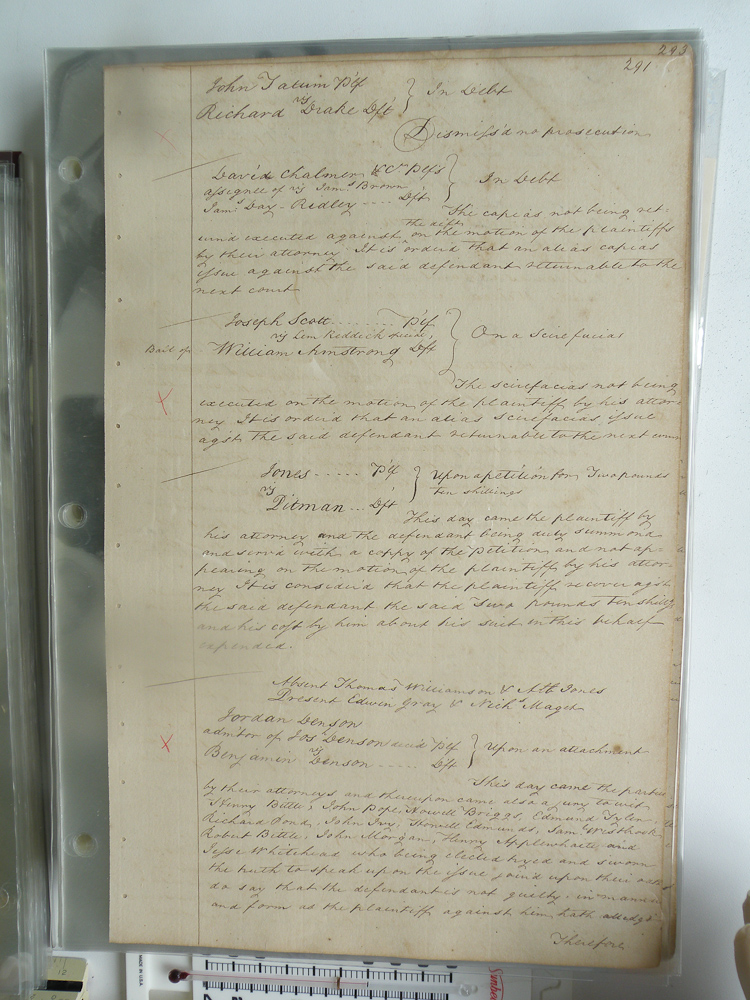 293
291
John Tatum Plf
vs
Richard Drake Dft
In Debt
Dismiss'd no prosecution
David Chalmers & Co Plfs
assignee of vs Jams Brown
Jams Day Ridley .... Dft
In Debt
The capias not being ret-
urn'd executed against the deft on the motion of the plaintiffs
by their attorney It is order'd that an alias capias
issue against the said defendant returnable to the
next court
Joseph Scott ........ Plf
vs
William Armstrong Dft
On a Scirefacias
Bail of
The scirefacias not being
executed on the motion of the plaintiff by his attor-
ney It is order'd that an alias scirefacias issue
agst the said defendant returnable to the next court
Jones ..... Plf
vs
Pitman ... Dft
Upon a petition for Two pounds
ten shillings
This day came the plaintiff by
his attorney and the defendant being duly summond
and serv'd with a coppy of the Petition and not ap-
pearing on the motion of the plaintiff by his attor-
ney It is consider'd that the plaintiff recover agst
the said defendant the said Two pounds ten shillgs
and his cost by him about his suit in this behalf
expended.
Absent Thomas Williamson & Alb Jones
Present Edwin Gray & Nichs Maget
Jordan Denson
admtor of Jos Denson decd Plf
vs
Benjamin Denson ..... Dft
Upon an attachment
This day came the parties
by their attorneys and thereupon came also a jury to wit
Henry Bittle, John Pope, Howell Briggs, Edmund Tyler,
Richard Pond, John Ivy, Howell Edmunds, Saml Westbrook
Robert Bittle, John Morgan, Henry Applewhaite, and
Jesse Whitehead who being elected tryed and sworn
the truth to speak upon the issue joind upon their oath
do say that the defendant is not guilty in manner
and form as the plaintiff against him hath alledgd
Therefore
MADE IN USA